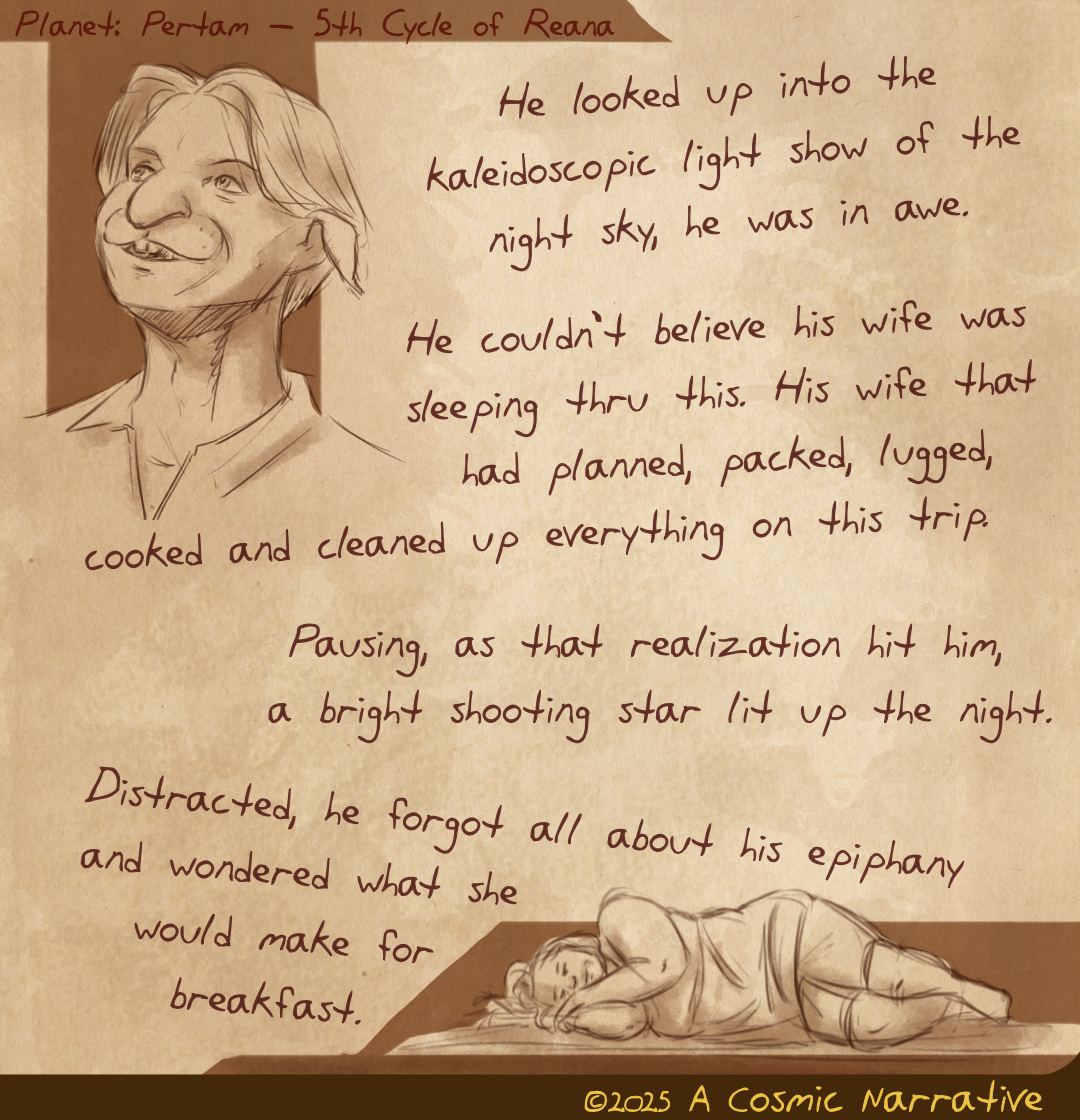 Planet: Pertam — 5th Cycle of Reana
He looked up into the
kaleidoscopic light show of the
night sky, he was in awe.
He couldn't believe his wife was
sleeping thru this. His wife that
had planned, packed, lugged,
cooked and cleaned up everything on this trip.
Pausing, as that realization hit him,
a bright shooting star lit up the night.
Distracted, he forgot all about his epiphany
and wondered what she
would make for
breakfast.
©2025 A Cosmic Narrative